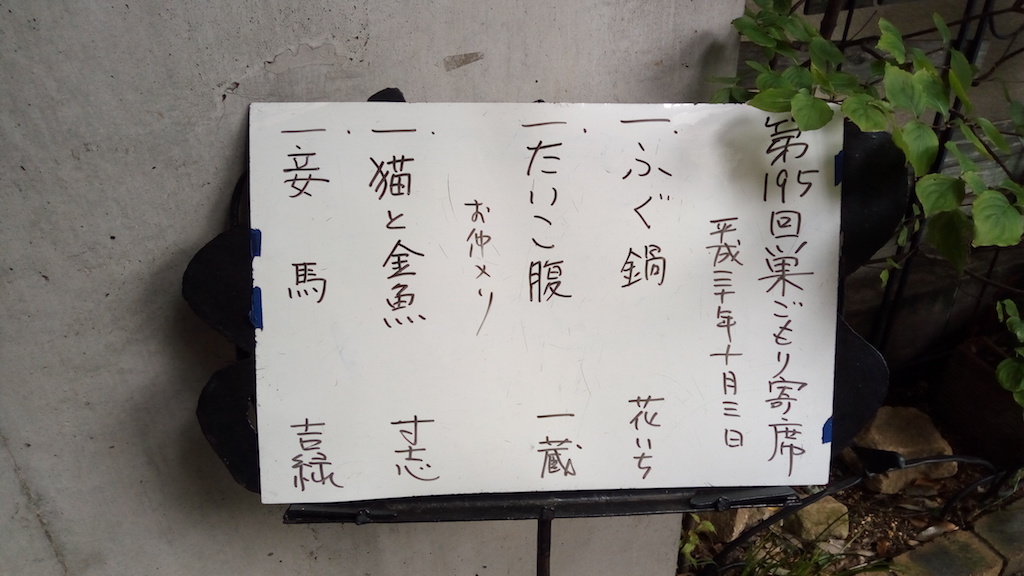 第195回巣ごもり寄席
平成三十年十月三日
一、ふぐ鍋 花いち
一、たいこ腹 一蔵
お仲入り
一、猫と金魚 寸志
一、妾馬 吉緑